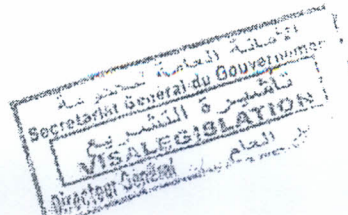 الأمانة العامة للحكومة
Secretariat General du Gouvernement
تأشيرة التشريع
VISA LEGISLATION
العام
Directeur Général